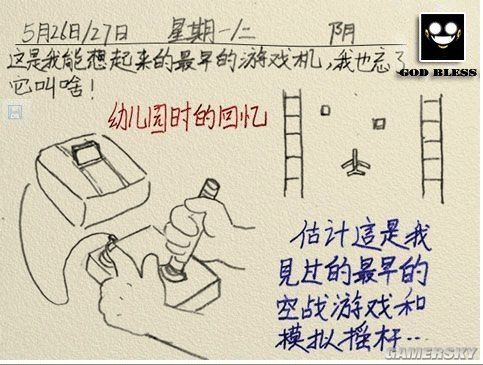 5月26日/27日 星期一/二 阴
GOD BLESS
这是我能想起来的最早的游戏机，我也忘了
它叫啥！
幼儿园时的回忆
估计這是我
見过的最早的
空战游戏和
模拟摇杆…
GAMERSKY